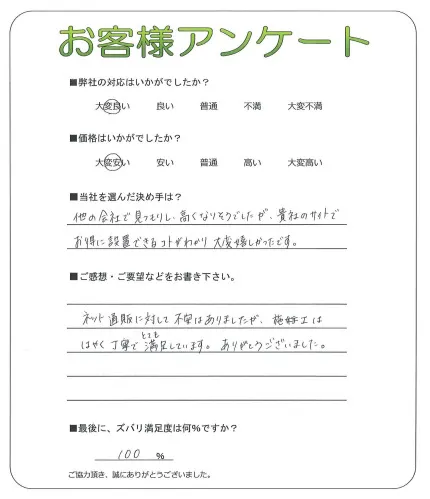 お客様アンケート
■弊社の対応はいかがでしたか？
大変良い 良い 普通 不満 大変不満
■価格はいかがでしたか？
大変安い 安い 普通 高い 大変高い
■当社を選んだ決め手は？
他の会社で見つもりし、高くなりそうでしたが、貴社のサイトで
お得に設置できるコトがわかり大変嬉しかったです。
■ご感想・ご要望などをお書き下さい。
ネット通販に対して不安はありましたが、施工は
とても
はやく丁寧で満足しています。ありがとうございました。
■最後に、ズバリ満足度は何%ですか？
100 %
ご協力頂き、誠にありがとうございました。